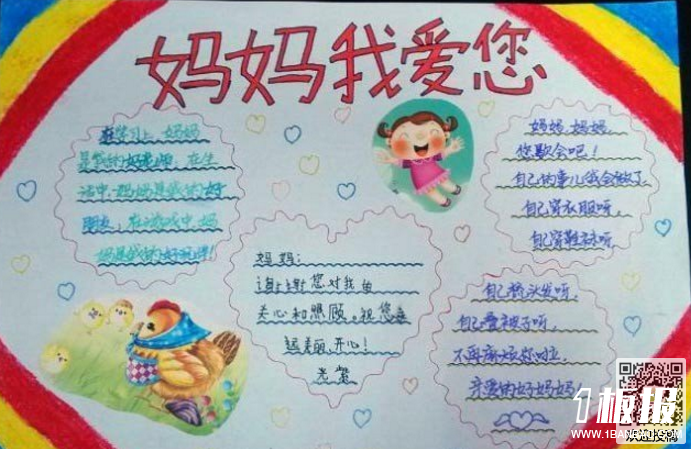 妈妈我爱您
在学习上,妈妈
是我的好老师,在生
活中,妈妈是我的好
朋友,在游戏中,妈
妈是我的好玩伴!
妈妈:
谢谢您对我的
关心和照顾。祝您永
远美丽、开心!
妈妈,妈妈,
您歇会吧!
自己的事儿我会做了
自己穿衣服呀,
自己穿鞋袜呀,
自己梳头发呀,
自己叠被子呀,
不再麻烦您啦,
亲爱的好妈妈
1板报
WWW.1BANBAO.COM
欢迎投稿